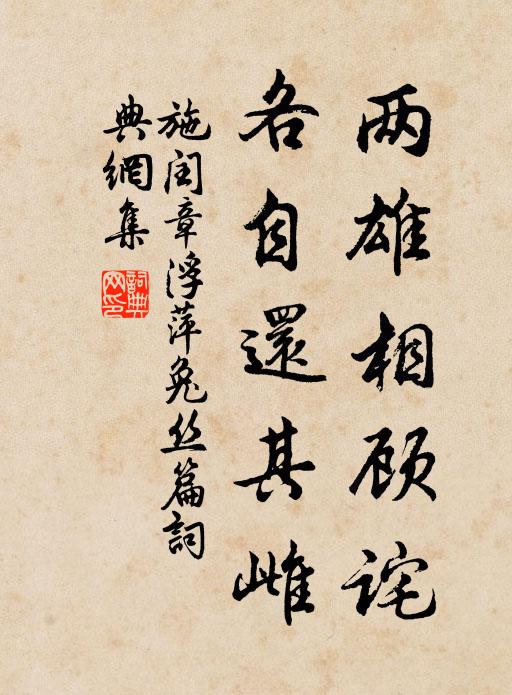 两雄相顾诧
各自還其雌
施闰章浮萍兔丝篇詞
典網集
詞典
网印